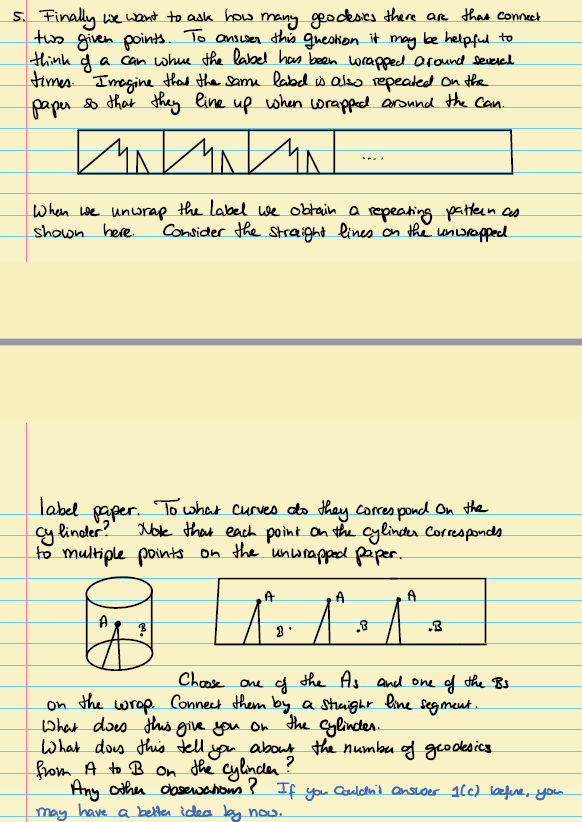 5. Finally we want to ask how many geodesics there are that connect
two given points. To answer this question it may be helpful to
think of a can where the label has been wrapped around several
times. Imagine that the same label is also repeated on the
paper so that they line up when wrapped around the can.
....
When we unwrap the label we obtain a repeating pattern as
shown here. Consider the straight lines on the unwrapped
label paper. To what curves do they correspond on the
cylinder? Note that each point on the cylinder corresponds
to multiple points on the unwrapped paper.
A B
A B A B A B
Choose one of the As and one of the Bs
on the wrap. Connect them by a straight line segment.
What does this give you on the cylinder.
What does this tell you about the number of geodesics
from A to B on the cylinder?
Any other observations? If you couldn't answer 1(c) before, you
may have a better idea by now.